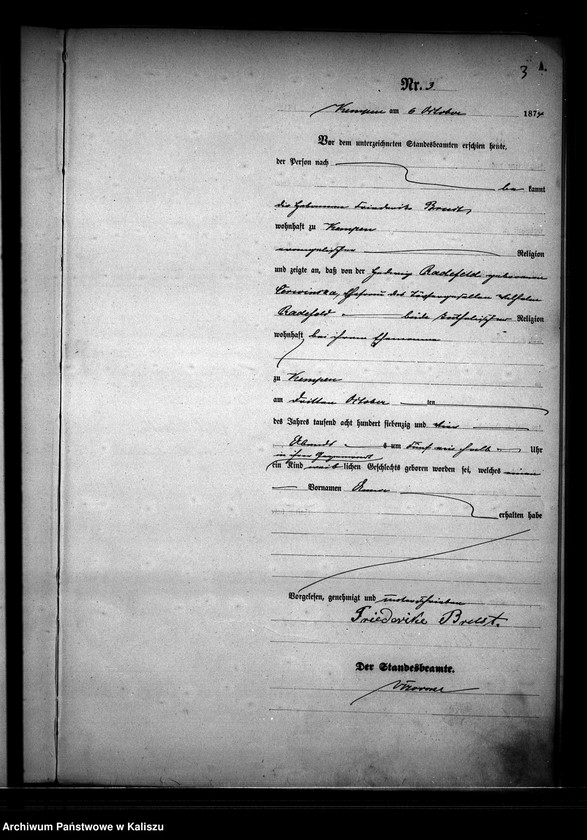 3 A.
Nr. 3
Kempen am 6 October 1874
Vor dem unterzeichneten Standesbeamten erschien heute,
der Person nach
be kannt
die Hebamme Friederike Brust,
wohnhaft zu Kempen
evangelischer Religion
und zeigte an, daß von der Hedwig Radefeld geborenen
Ehefrau des Wilhelm
Radefeld beide katholischer Religion
wohnhaft bei ihrem Ehemanne
zu Kempen
am dritten October ten
des Jahres tausend acht hundert siebenzig und vier
Abends um fünf ein halb Uhr
in ihrer Gegenwart
ein Kind weiblichen Geschlechts geboren worden sei, welches einen
Vornamen
erhalten habe
Vorgelesen, genehmigt und unterschrieben
Friederike Brust.
Der Standesbeamte.
Archiwum Państwowe w Kaliszu